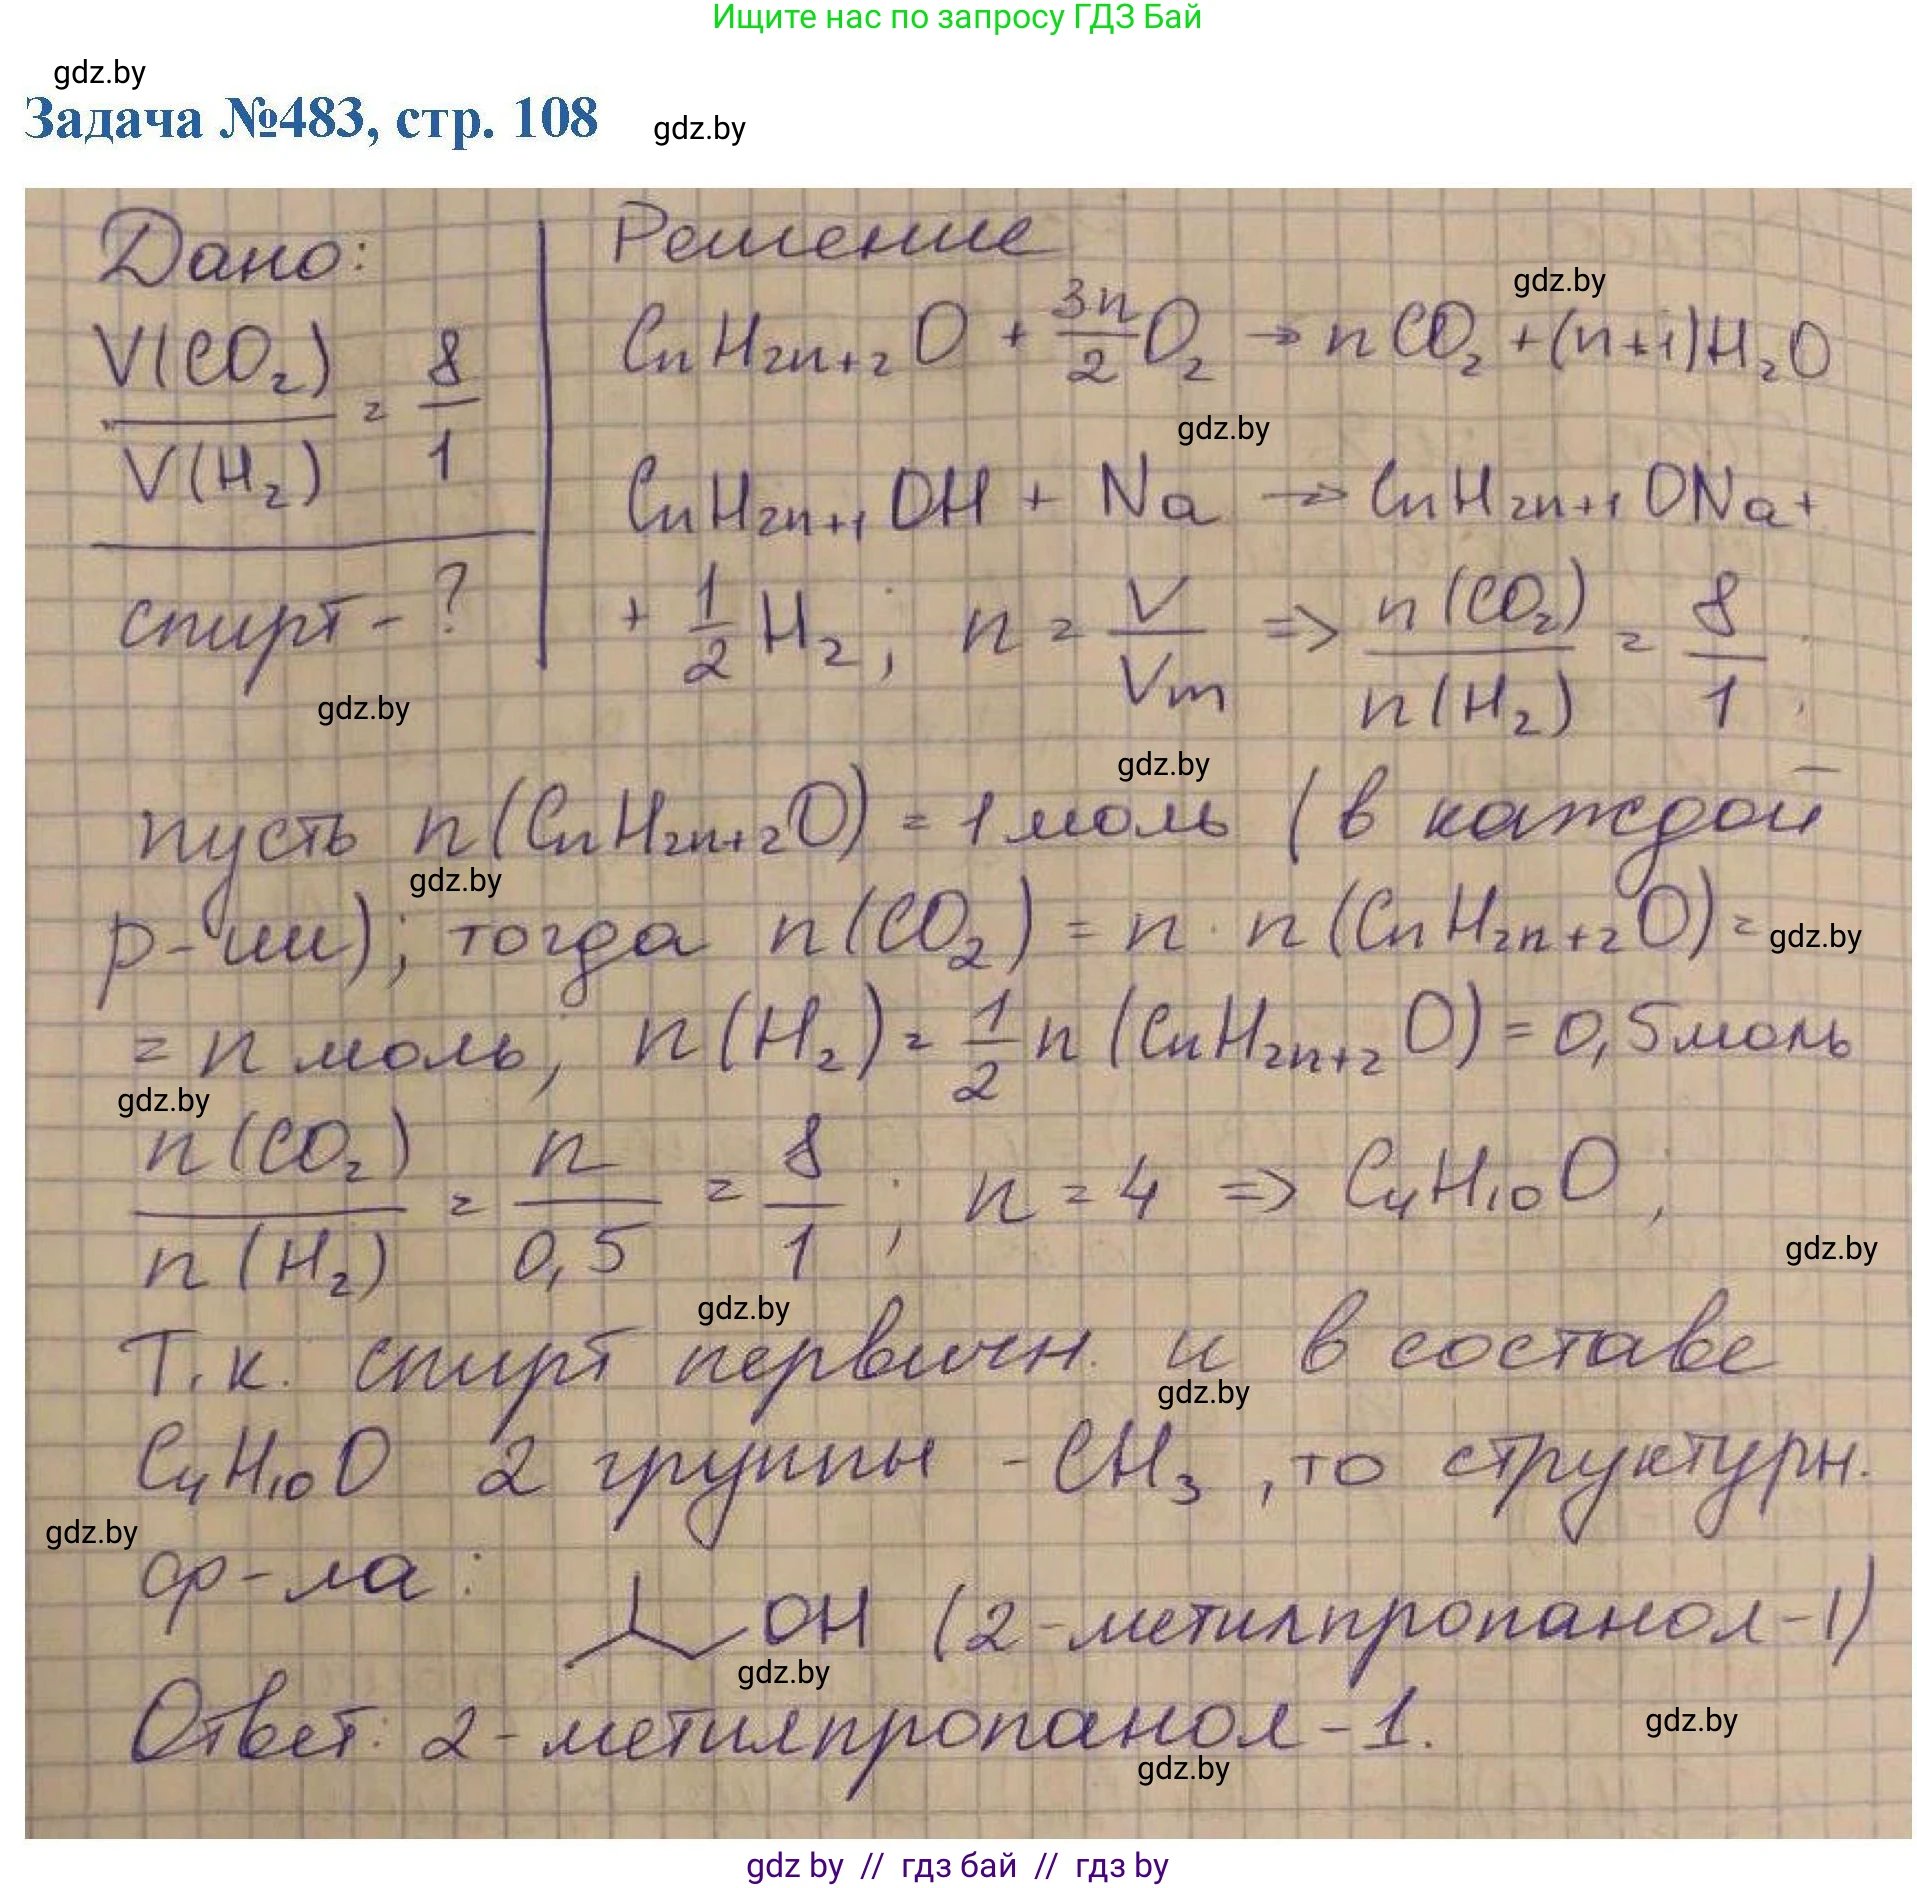 Ищите нас по запросу ГДЗ Бай
gdz.by
Задача №483, стр. 108
gdz.by
Дано:
V(CO₂)/V(H₂) = 8/1
спирт - ?
Решение
gdz.by
CnH2n+2O + 3n/2 O₂ → nCO₂ + (n+1)H₂O
gdz.by
CnH2n+1OH + Na → CnH2n+1ONa +
+ 1/2 H₂; n = V/Vm => n(CO₂)/n(H₂) = 8/1;
gdz.by
gdz.by
пусть n(CnH2n+2O) = 1 моль (в каждой
gdz.by
р-ции); тогда n(CO₂) = n · n(CnH2n+2O) =
gdz.by
= n моль; n(H₂) = 1/2 n(CnH2n+2O) = 0,5 моль
gdz.by
n(CO₂)/n(H₂) = n/0,5 = 8/1; n = 4 => C₄H₁₀O;
gdz.by
gdz.by
Т.к. спирт первичн. и в составе
gdz.by
C₄H₁₀O 2 группы -CH₃, то структурн.
gdz.by
ф-ла:
OH (2-метилпропанол-1)
gdz.by
Ответ: 2-метилпропанол-1.
gdz.by
gdz.by
gdz by // гдз бай // гдз by